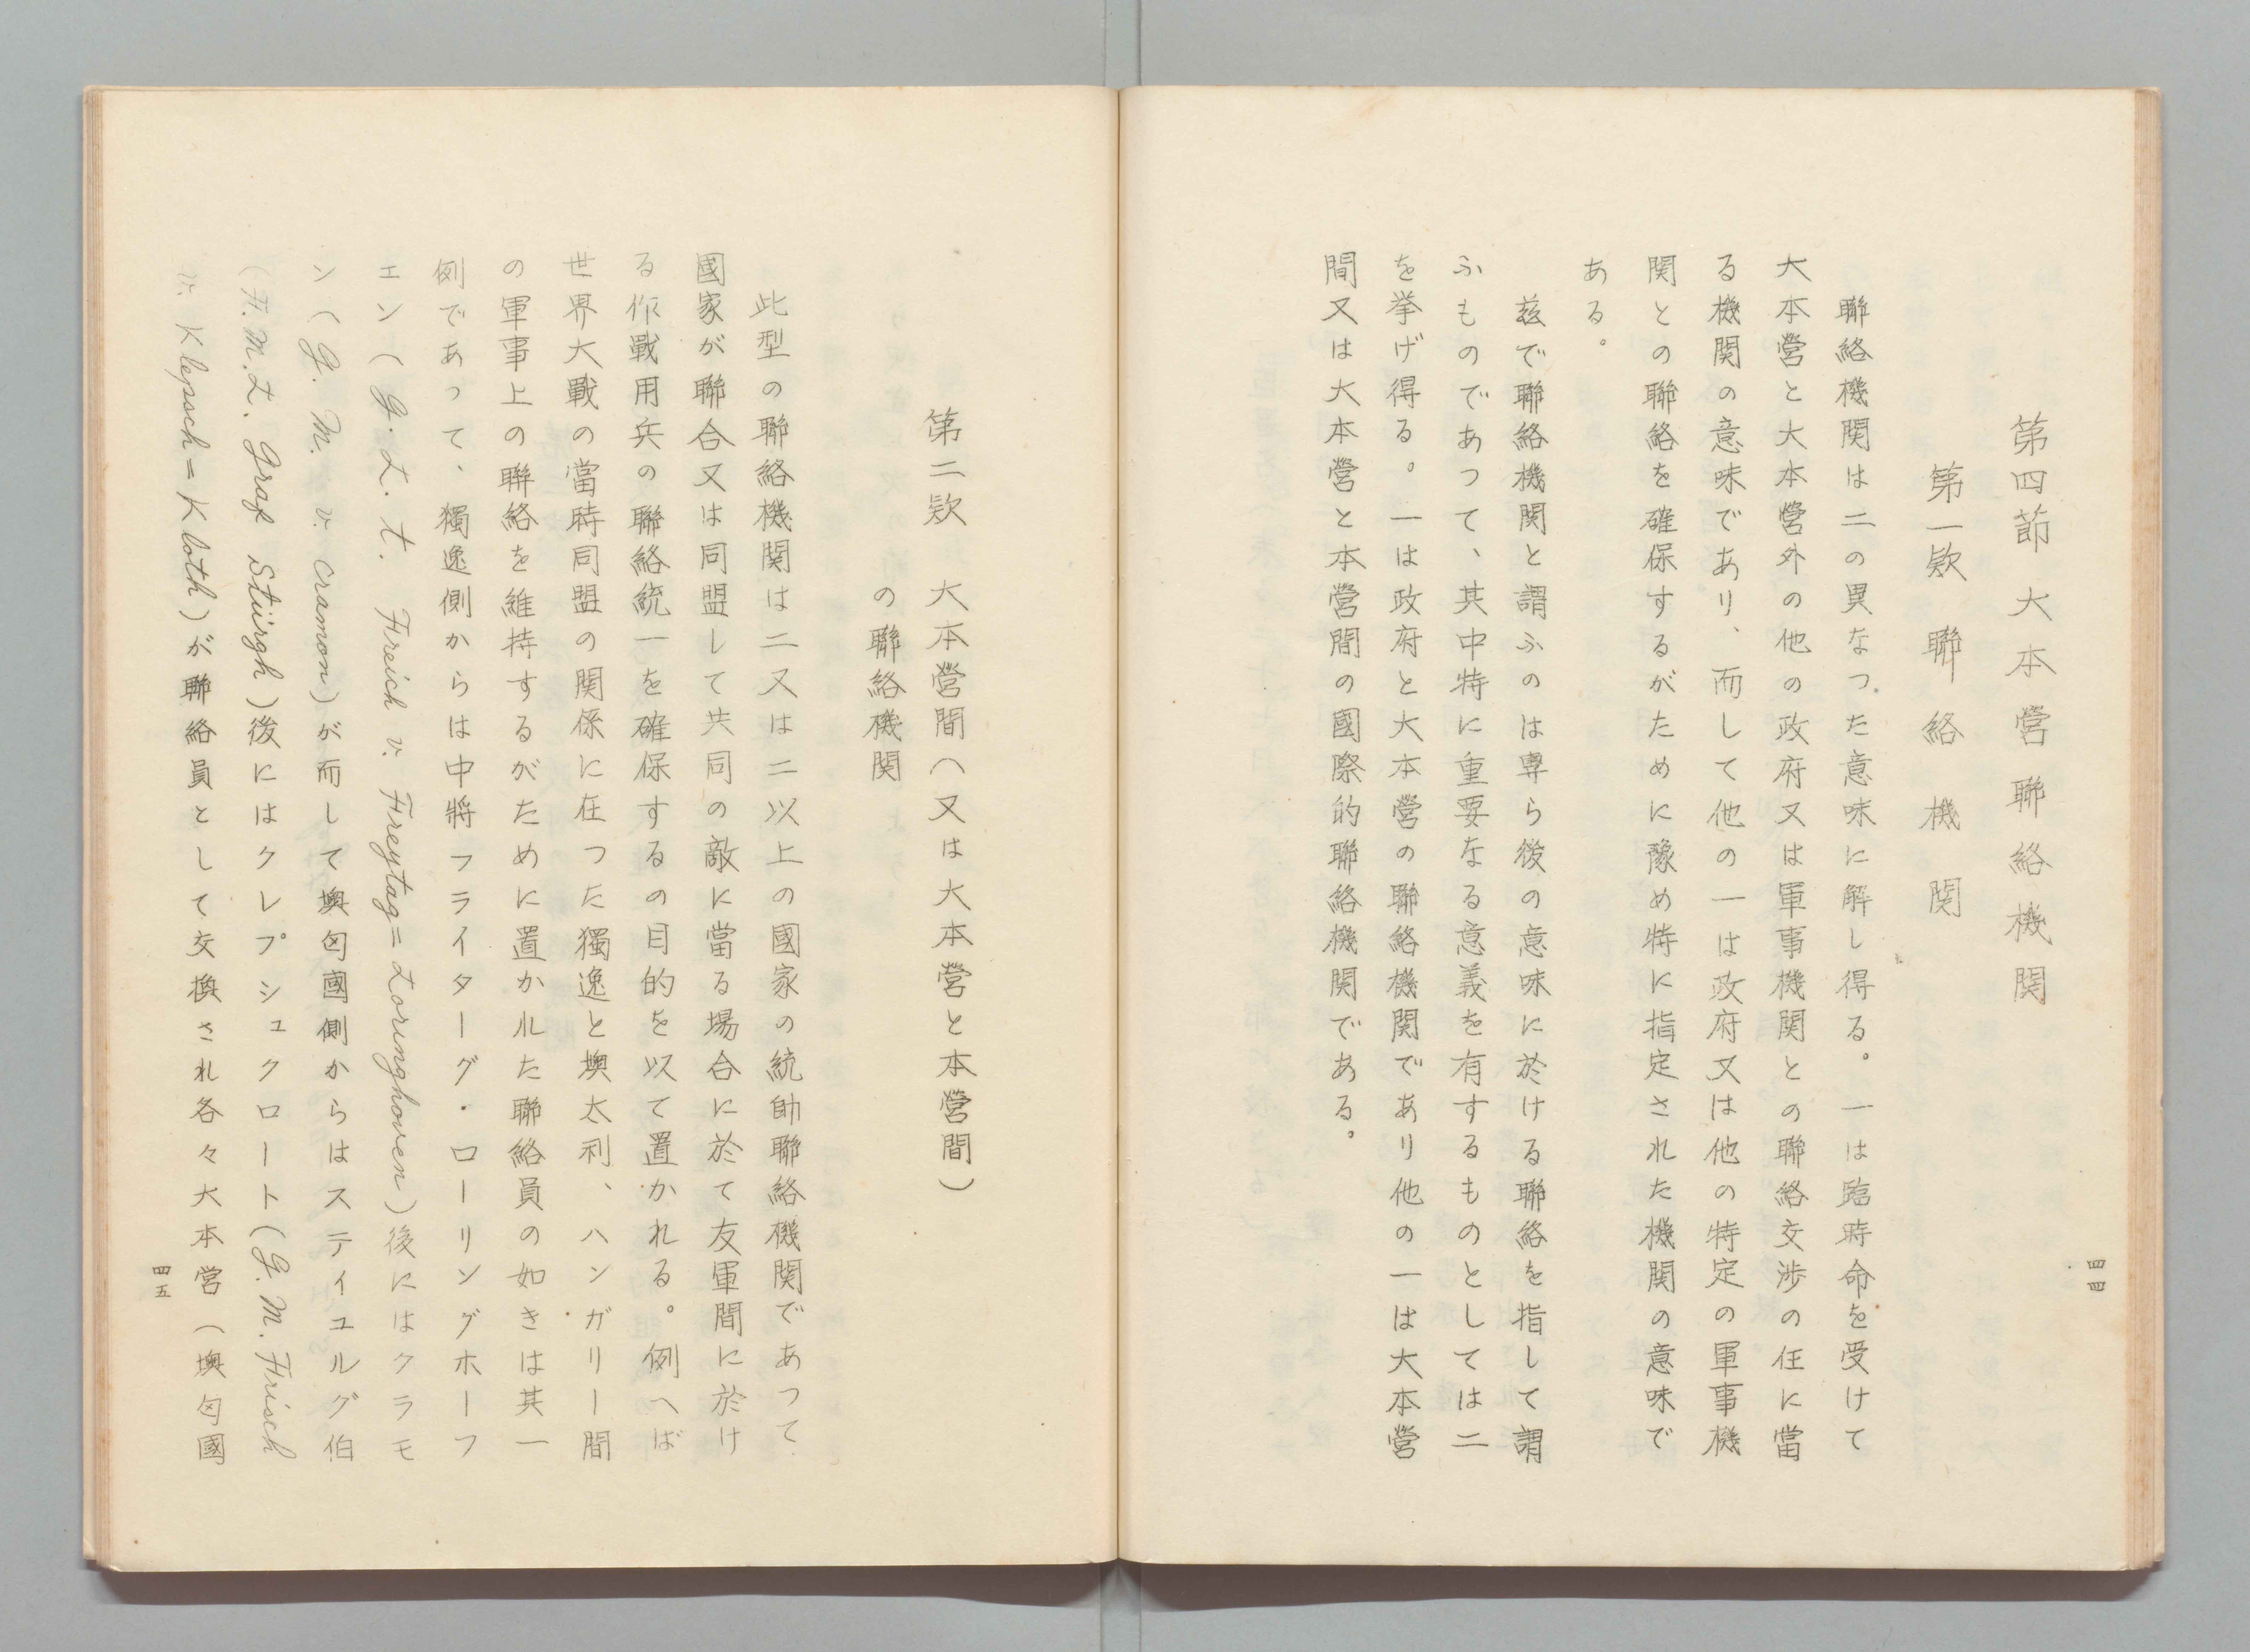 第四節 大本営聯絡機関
第一欵 聯絡機関
聯絡機関は二の異なつた意味に解し得る。一は臨時命を受けて
大本営と大本営外の他の政府又は軍事機関との聯絡交渉の任に當
る機関の意味であり、而して他の一は政府又は他の特定の軍事機
関との聯絡を確保するがために豫め特に指定された機関の意味で
ある。
茲で聯絡機関と謂ふのは専ら後の意味に於ける聯絡を指して謂
ふものであつて、其中特に重要なる意義を有するものとしては二
を挙げ得る。一は政府と大本営の聯絡機関であり他の一は大本営
間又は大本営と本営間の國際的聯絡機関である。
四四
第二欵 大本営間(又は大本営と本営間)
の聯絡機関
此型の聯絡機関は二又は二以上の國家の統帥聯絡機関であつて
國家が聯合又は同盟して共同の敵に當る場合に於て友軍間に於け
る作戰用兵の聯絡統一を確保するの目的を以て置かれる。例へば
世界大戰の當時同盟の関係に在つた獨逸と墺太利、ハンガリー間
の軍事上の聯絡を維持するがために置かれた聯絡員の如きは其一
例であつて、獨逸側からは中將フライターグ・ローリングホーフ
エン(G. L. t. Freich v. Freytag=Loringhoven)後にはクラモ
ン(G. M. v. Cramon)が而して墺匈國側からはスティユルグ伯
(F. M. L. Graf Stürgh)後にはクレプシュクロート(G. M. Frisch
v. Klepsch=Kloth)が聯絡員として交換され各々大本営(墺匈國
四五